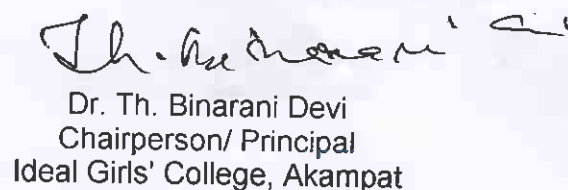 Th. Binarani Devi
Dr. Th. Binarani Devi
Chairperson/ Principal
Ideal Girls' College, Akampat